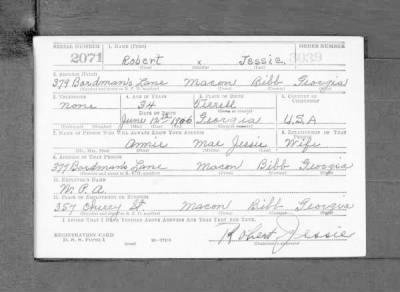 SERIAL NUMBER 1. NAME (Print) ORDER NUMBER
2071 Robert x Jessie 3039
(First) (Middle) (Last)
2. ADDRESS (Print)
379 Bordman's Lane Macon Bibb Georgia
3. TELEPHONE 4. AGE IN YEARS 5. PLACE OF BIRTH 6. COUNTRY OF CITIZENSHIP
None 34 Terrell
DATE OF BIRTH (Town or county)
June 12th 1906 Georgia U.S.A
7. NAME OF PERSON WHO WILL ALWAYS KNOW YOUR ADDRESS 8. RELATIONSHIP OF THAT PERSON
Annie Mae Jessie Wife
(Mr., Mrs., Miss) (First) (Middle) (Last)
9. ADDRESS OF THAT PERSON
379 Bordman's Lane Macon Bibb Georgia
10. EMPLOYER'S NAME
W.P.A.
11. PLACE OF EMPLOYMENT OR BUSINESS
357 Cherry St. Macon Bibb Georgia
I AFFIRM THAT I HAVE VERIFIED ABOVE ANSWERS AND THAT THEY ARE TRUE.
REGISTRATION CARD
D. S. S. FORM 1 Robert Jessie